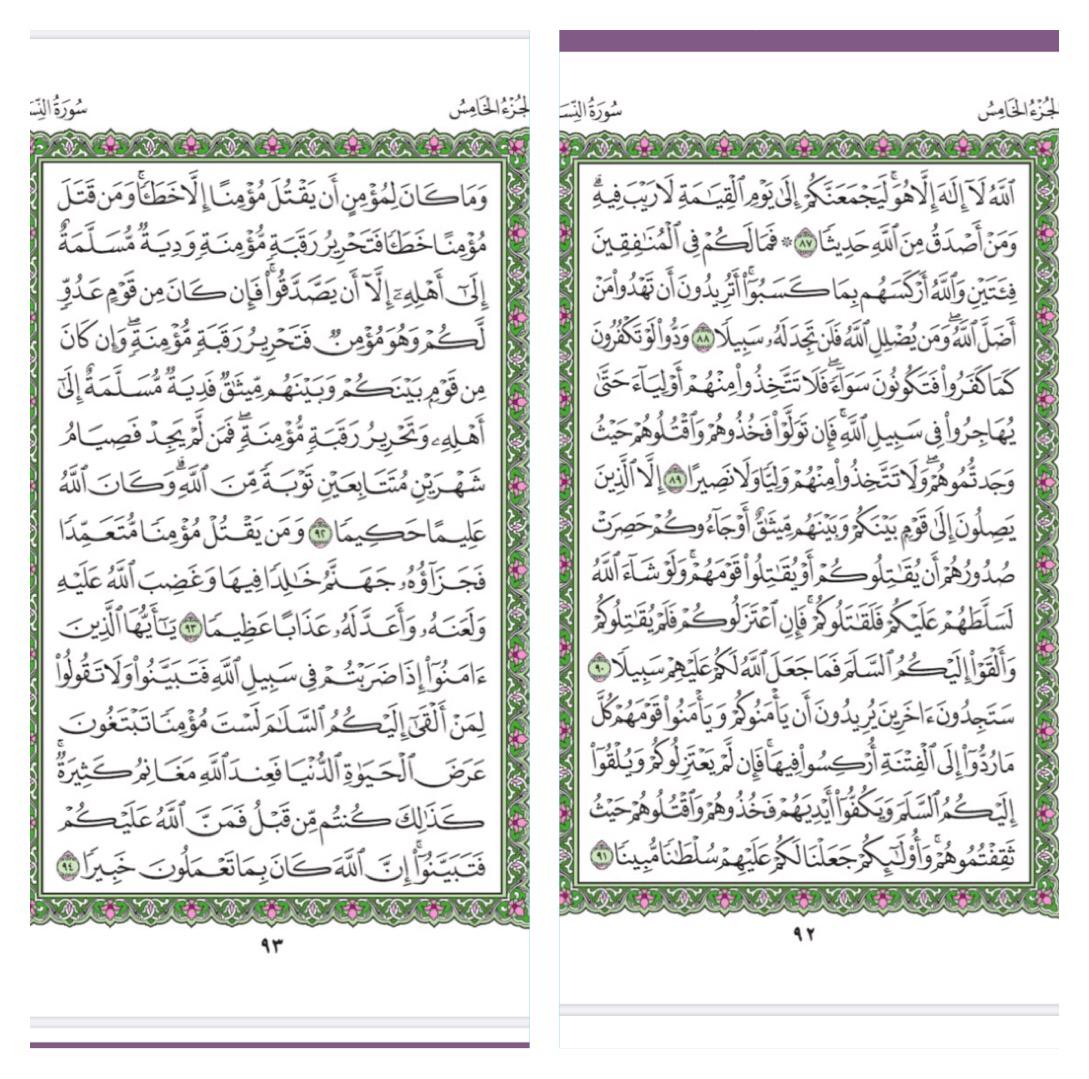 الجُزْءُ الخَامِسُ
سُورَةُ النِّسَ
ٱللَّهُ لَآ إِلَٰهَ إِلَّا هُوَۚ لَيَجْمَعَنَّكُمْ إِلَىٰ يَوْمِ ٱلْقِيَٰمَةِ لَا رَيْبَ فِيهِۗ
وَمَنْ أَصْدَقُ مِنَ ٱللَّهِ حَدِيثًا ٨٧ ۞ فَمَا لَكُمْ فِي ٱلْمُنَٰفِقِينَ
فِئَتَيْنِ وَٱللَّهُ أَرْكَسَهُم بِمَا كَسَبُوٓا۟ۚ أَتُرِيدُونَ أَن تَهْدُوا۟ مَنْ
أَضَلَّ ٱللَّهُۖ وَمَن يُضْلِلِ ٱللَّهُ فَلَن تَجِدَ لَهُۥ سَبِيلًا ٨٨ وَدُّوا۟ لَوْ تَكْفُرُونَ
كَمَا كَفَرُوا۟ فَتَكُونُونَ سَوَآءًۖ فَلَا تَتَّخِذُوا۟ مِنْهُمْ أَوْلِيَآءَ حَتَّىٰ
يُهَاجِرُوا۟ فِي سَبِيلِ ٱللَّهِۚ فَإِن تَوَلَّوْا۟ فَخُذُوهُمْ وَٱقْتُلُوهُمْ حَيْثُ
وَجَدتُّمُوهُمْۖ وَلَا تَتَّخِذُوا۟ مِنْهُمْ وَلِيًّا وَلَا نَصِيرًا ٨٩ إِلَّا ٱلَّذِينَ
يَصِلُونَ إِلَىٰ قَوْمٍۭ بَيْنَكُمْ وَبَيْنَهُم مِّيثَٰقٌ أَوْ جَآءُوكُمْ حَصِرَتْ
صُدُورُهُمْ أَن يُقَٰتِلُوكُمْ أَوْ يُقَٰتِلُوا۟ قَوْمَهُمْۚ وَلَوْ شَآءَ ٱللَّهُ
لَسَلَّطَهُمْ عَلَيْكُمْ فَلَقَٰتَلُوكُمْۚ فَإِنِ ٱعْتَزَلُوكُمْ فَلَمْ يُقَٰتِلُوكُمْ
وَأَلْقَوْا۟ إِلَيْكُمُ ٱلسَّلَمَ فَمَا جَعَلَ ٱللَّهُ لَكُمْ عَلَيْهِمْ سَبِيلًا ٩٠
سَتَجِدُونَ ءَاخَرِينَ يُرِيدُونَ أَن يَأْمَنُوكُمْ وَيَأْمَنُوا۟ قَوْمَهُمْ كُلَّ
مَا رُدُّوٓا۟ إِلَى ٱلْفِتْنَةِ أُرْكِسُوا۟ فِيهَاۚ فَإِن لَّمْ يَعْتَزِلُوكُمْ وَيُلْقُوٓا۟
إِلَيْكُمُ ٱلسَّلَمَ وَيَكُفُّوٓا۟ أَيْدِيَهُمْ فَخُذُوهُمْ وَٱقْتُلُوهُمْ حَيْثُ
ثَقِفْتُمُوهُمْۚ وَأُو۟لَٰٓئِكُمْ جَعَلْنَا لَكُمْ عَلَيْهِمْ سُلْطَٰنًا مُّبِينًا ٩١
٩٢
الجُزْءُ الخَامِسُ
سُورَةُ النِّسَ
وَمَا كَانَ لِمُؤْمِنٍ أَن يَقْتُلَ مُؤْمِنًا إِلَّا خَطَـًٔاۚ وَمَن قَتَلَ
مُؤْمِنًا خَطَـًٔا فَتَحْرِيرُ رَقَبَةٍ مُّؤْمِنَةٍ وَدِيَةٌ مُّسَلَّمَةٌ
إِلَىٰٓ أَهْلِهِۦٓ إِلَّآ أَن يَصَّدَّقُوا۟ۚ فَإِن كَانَ مِن قَوْمٍ عَدُوٍّ
لَّكُمْ وَهُوَ مُؤْمِنٌ فَتَحْرِيرُ رَقَبَةٍ مُّؤْمِنَةٍۖ وَإِن كَانَ
مِن قَوْمٍۭ بَيْنَكُمْ وَبَيْنَهُم مِّيثَٰقٌ فَدِيَةٌ مُّسَلَّمَةٌ إِلَىٰٓ
أَهْلِهِۦ وَتَحْرِيرُ رَقَبَةٍ مُّؤْمِنَةٍۖ فَمَن لَّمْ يَجِدْ فَصِيَامُ
شَهْرَيْنِ مُتَتَابِعَيْنِ تَوْبَةً مِّنَ ٱللَّهِۗ وَكَانَ ٱللَّهُ
عَلِيمًا حَكِيمًا ٩٢ وَمَن يَقْتُلْ مُؤْمِنًا مُّتَعَمِّدًا
فَجَزَآؤُهُۥ جَهَنَّمُ خَٰلِدًا فِيهَا وَغَضِبَ ٱللَّهُ عَلَيْهِ
وَلَعَنَهُۥ وَأَعَدَّ لَهُۥ عَذَابًا عَظِيمًا ٩٣ يَٰٓأَيُّهَا ٱلَّذِينَ
ءَامَنُوٓا۟ إِذَا ضَرَبْتُمْ فِي سَبِيلِ ٱللَّهِ فَتَبَيَّنُوا۟ وَلَا تَقُولُوا۟
لِمَنْ أَلْقَىٰٓ إِلَيْكُمُ ٱلسَّلَٰمَ لَسْتَ مُؤْمِنًا تَبْتَغُونَ
عَرَضَ ٱلْحَيَوٰةِ ٱلدُّنْيَا فَعِندَ ٱللَّهِ مَغَانِمُ كَثِيرَةٌۚ
كَذَٰلِكَ كُنتُم مِّن قَبْلُ فَمَنَّ ٱللَّهُ عَلَيْكُمْ
فَتَبَيَّنُوٓا۟ۚ إِنَّ ٱللَّهَ كَانَ بِمَا تَعْمَلُونَ خَبِيرًا ٩٤
٩٣